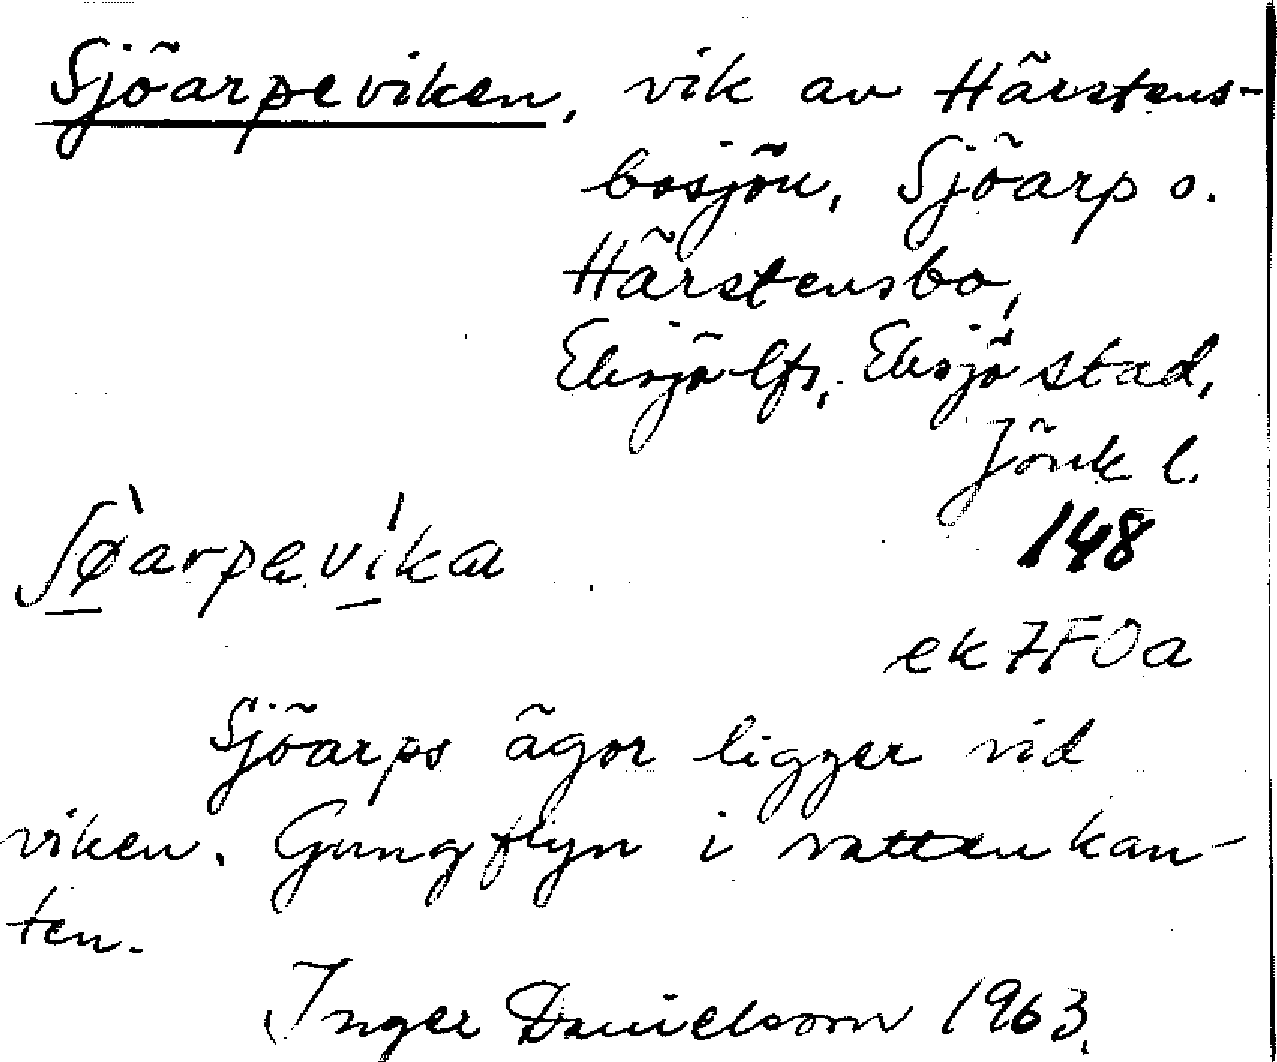 Sjöarpeviken, vik av Härstens-
bosjön, Sjöarp o.
Härstensbo,
Eksjö lfs, Eksjö stad,
Jönk l.
148
ʃø̀arpevíka
ek 7F0a
Sjöarps ägor ligger vid
viken. Gungflyn i vattenkan-
ten.
Inger Danielsson 1963.